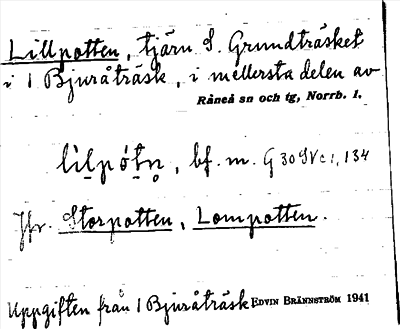 Lillpotten, tjärn S. Grundträsket
i 1 Bjuråträsk, i mellersta delen av
Råneå sn och tg, Norrb. l.
lilpótn, bf. m. G 30 SV c 1, 134
Jfr. Storpotten, Lompotten.
Uppgiften från 1 Bjuråträsk EDVIN BRÄNNSTRÖM 1941